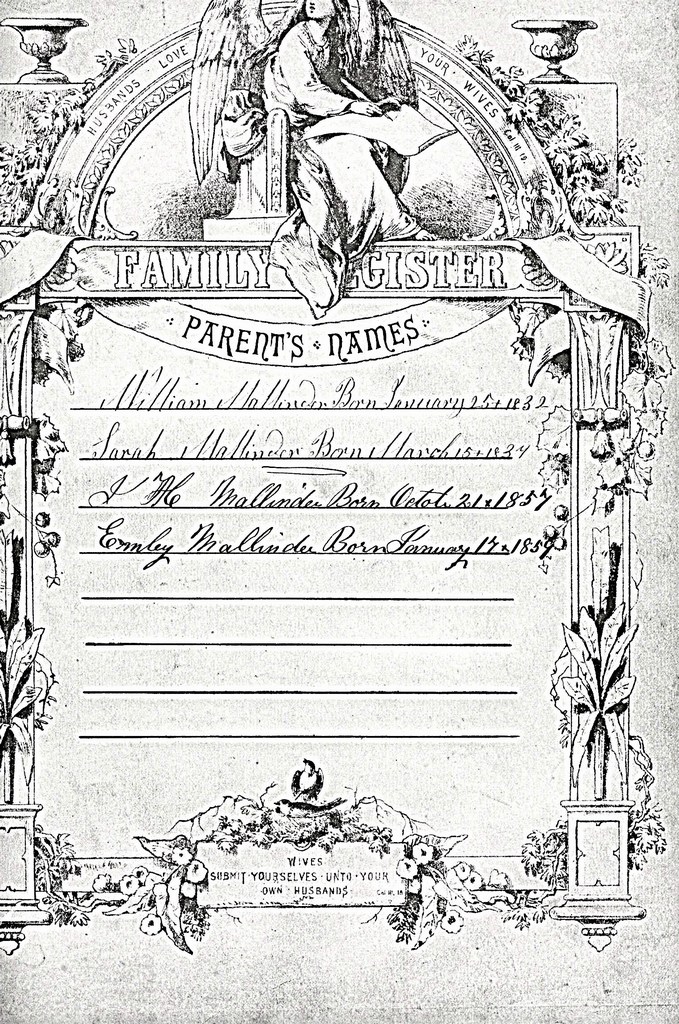 HUSBANDS · LOVE YOUR · WIVES Col III 19.
FAMILY REGISTER
PARENT'S · NAMES
William Mallinder Born January 25 + 1832
Sarah Mallinder Born March 15 +
J H Mallinder Born Octob 21 x 1857
Emley Mallinder Born January 17 x 1859
WIVES
SUBMIT · YOURSELVES · UNTO · YOUR
OWN · HUSBANDS Col III, 18